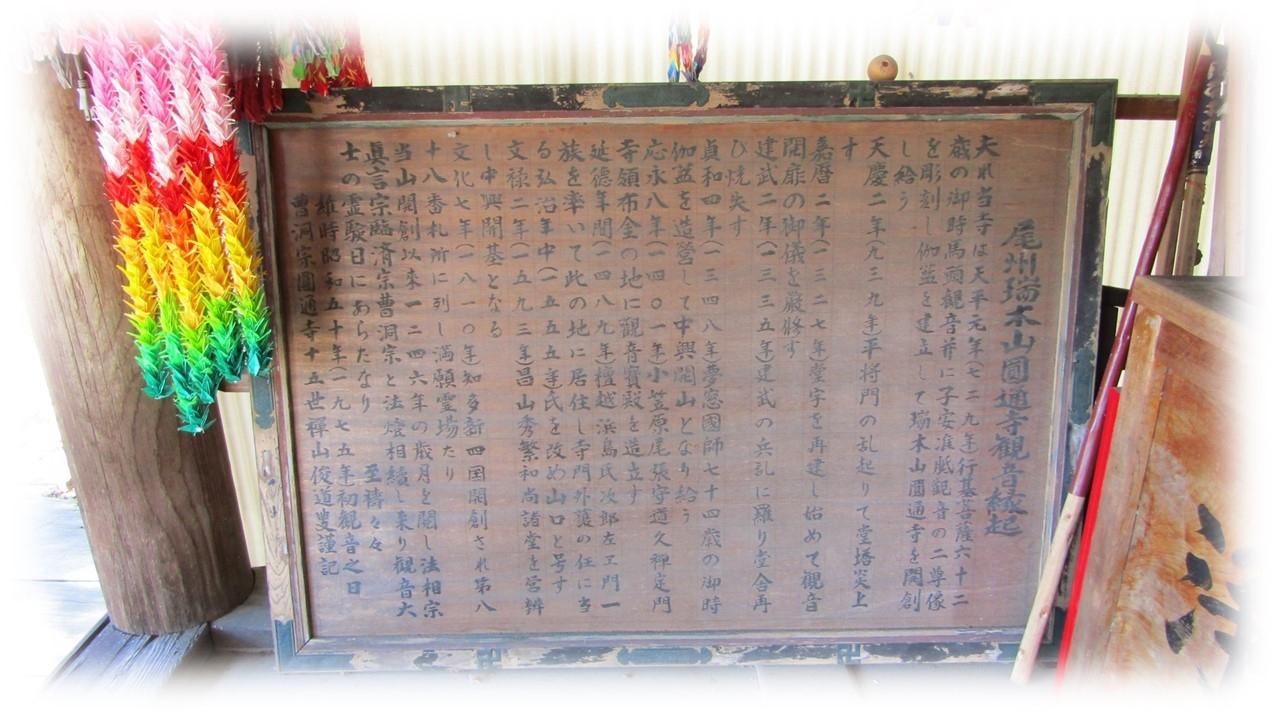 尾州瑞木山圓通寺觀音縁起
夫れ当寺は天平元年(七二九年)行基菩薩六十二
歳の御時馬頭觀音并に子安准胝観音の二尊像
を彫刻し伽藍を建立して瑞木山圓通寺を開創
し給う
天慶二年(九三九年)平将門の乱起りて堂塔炎上
す
嘉暦二年(一三二七年)堂宇を再建し始めて觀音
開扉の御儀を嚴修す
建武二年(一三三五年)建武の兵乱に罹り堂舎再
び焼失す
貞和四年(一三四八年)夢窓國師七十四歳の御時
伽藍を造營して中興開山となり給う
応永八年(一四〇一年)小笠原尾張守道久禅定門
寺領布金の地に觀音寶殿を造立す
延德年間(一四八九年)檀越浜島氏次郎左エ門一
族を率いて此の地に居住し寺門外護の任に当
る弘治年中(一五五五年)氏を改め山口と号す
文禄二年(一五九三年)昌山秀繁和尚諸堂を営辨
し中興開基となる
文化七年(一八一〇年)知多新四国開創され第八
十八番札所に列し満願霊場たり
当山開創以来一二四六年の歳月を閲し法相宗
眞言宗臨済宗曹洞宗と法燈相續し来り觀音大
士の霊驗日にあらたなり 至祷々々
維時昭和五十年(一九七五年)初觀音之日
曹洞宗圓通寺十五世禅山俊道叟謹記